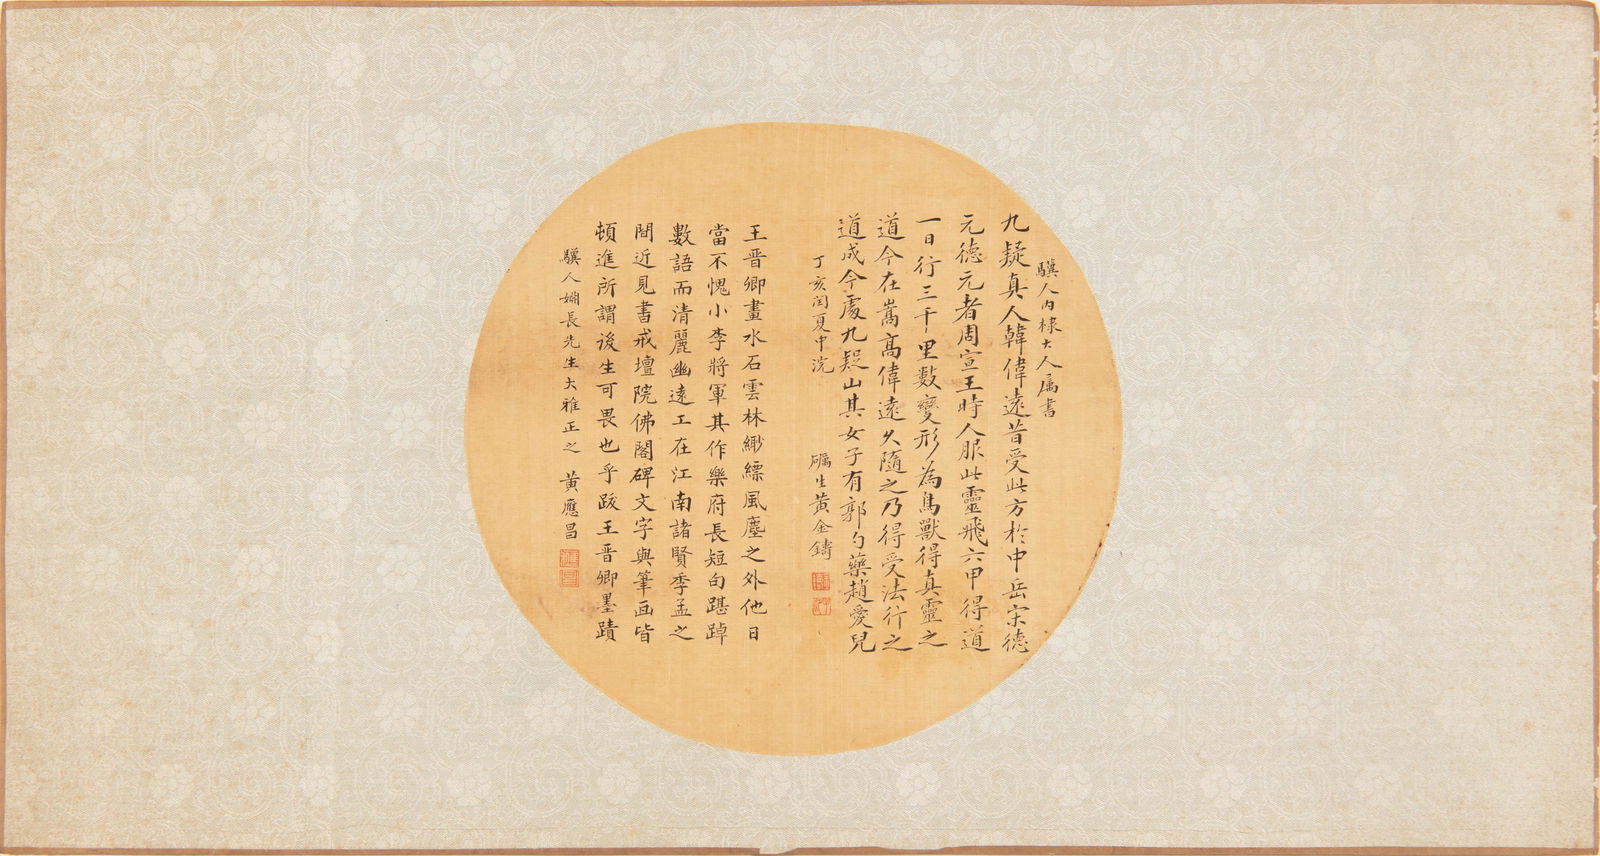 驥人內棣大人属書
九疑真人韓偉遠昔受此方於中岳宋德
元德元者周宣王時人服此靈飛六甲得道
一日行三千里數變形為鳥獸得真靈之
道今在嵩高偉遠久隨之乃得受法行之
道成今處九疑山其女子有郭勺藥趙愛兒
丁亥閏夏中浣
礪生黃金鑄
王晉卿畫水石雲林緲縹風塵之外他日
當不愧小李將軍其作樂府長短句踸踔
數語而清麗幽遠工在江南諸賢季孟之
間近見書戒壇院佛閣碑文字與筆画皆
頓進所謂後生可畏也乎跋王晉卿墨蹟
驥人姻長先生大雅正之 黃應昌